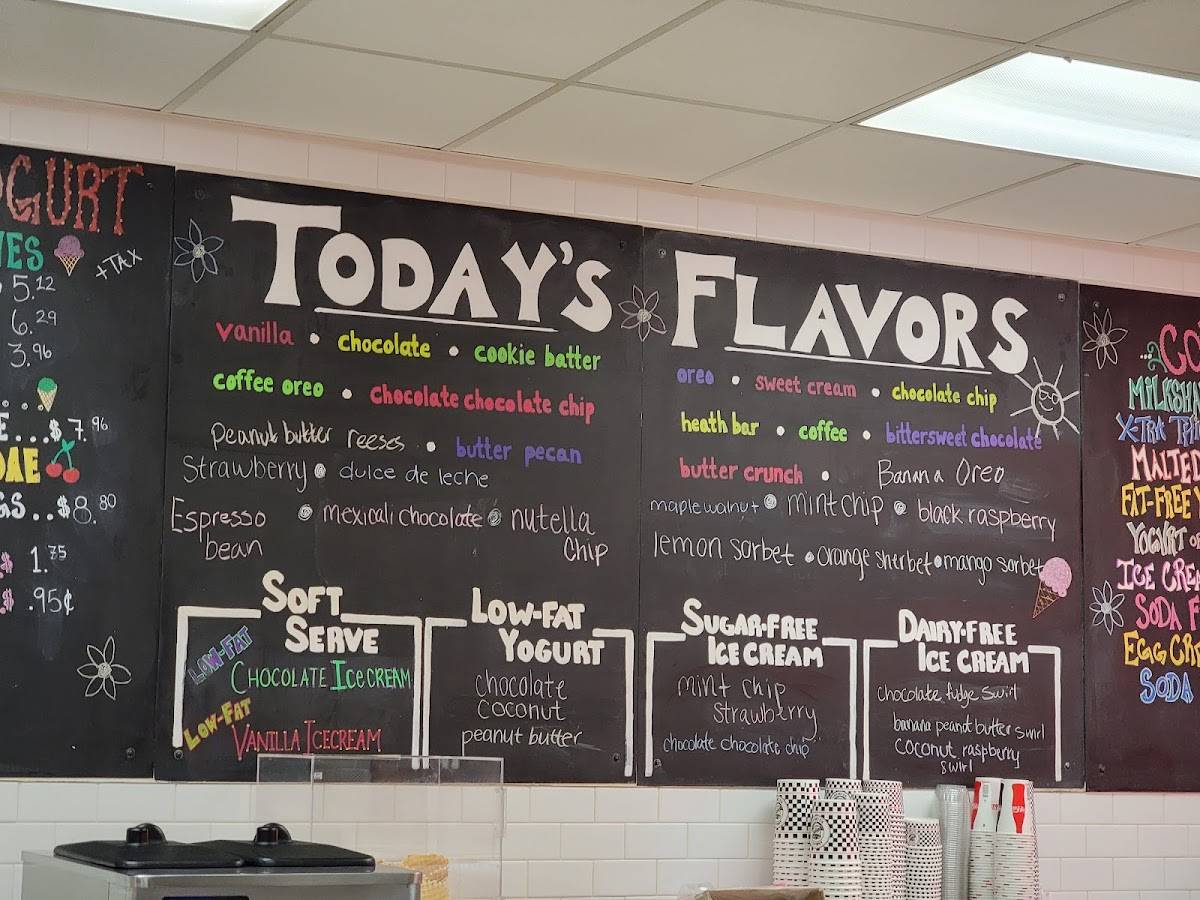 OGURT
+TAX
5.12
6.29
3.96
...$7.96
$8.80
1.75
.95¢
TODAY'S
vanilla • chocolate • cookie batter
coffee oreo • chocolate chocolate chip
peanut butter reeses • butter pecan
Strawberry • dulce de leche
Espresso bean • mexicali chocolate • nutella
chip
SOFT
SERVE
LOW-FAT
CHOCOLATE ICE CREAM
LOW-FAT
VANILLA ICECREAM
LOW-FAT
YOGURT
chocolate
coconut
peanut butter
FLAVORS
oreo • sweet cream • chocolate chip
heath bar • coffee • bittersweet chocolate
butter crunch • Banana Oreo
maple walnut • mint chip • black raspberry
lemon sorbet • orange sherbet • mango sorbet
SUGAR-FREE
ICE CREAM
mint chip
strawberry
chocolate chocolate chip
DAIRY-FREE
ICE CREAM
chocolate fudge swirl
banana peanut butter swirl
coconut raspberry
swirl
CO
MILKSHA
X-TRA THI
MALTED
FAT-FREE
YOGURT OR
ICE CREA
SODA F
EGG CR
SODA